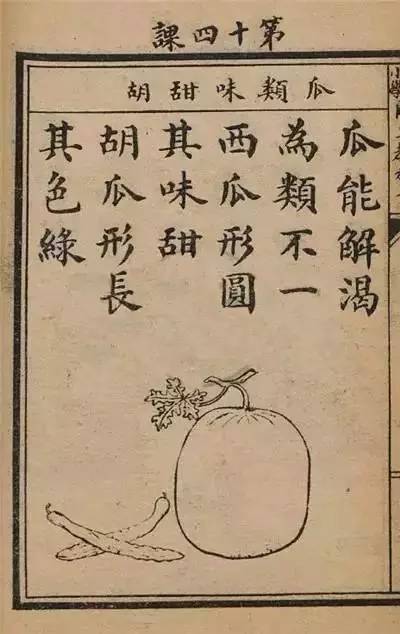 第十四課
瓜類味甜胡
瓜能解渴
為類不一
西瓜形圓
其味甜
胡瓜形長
其色綠